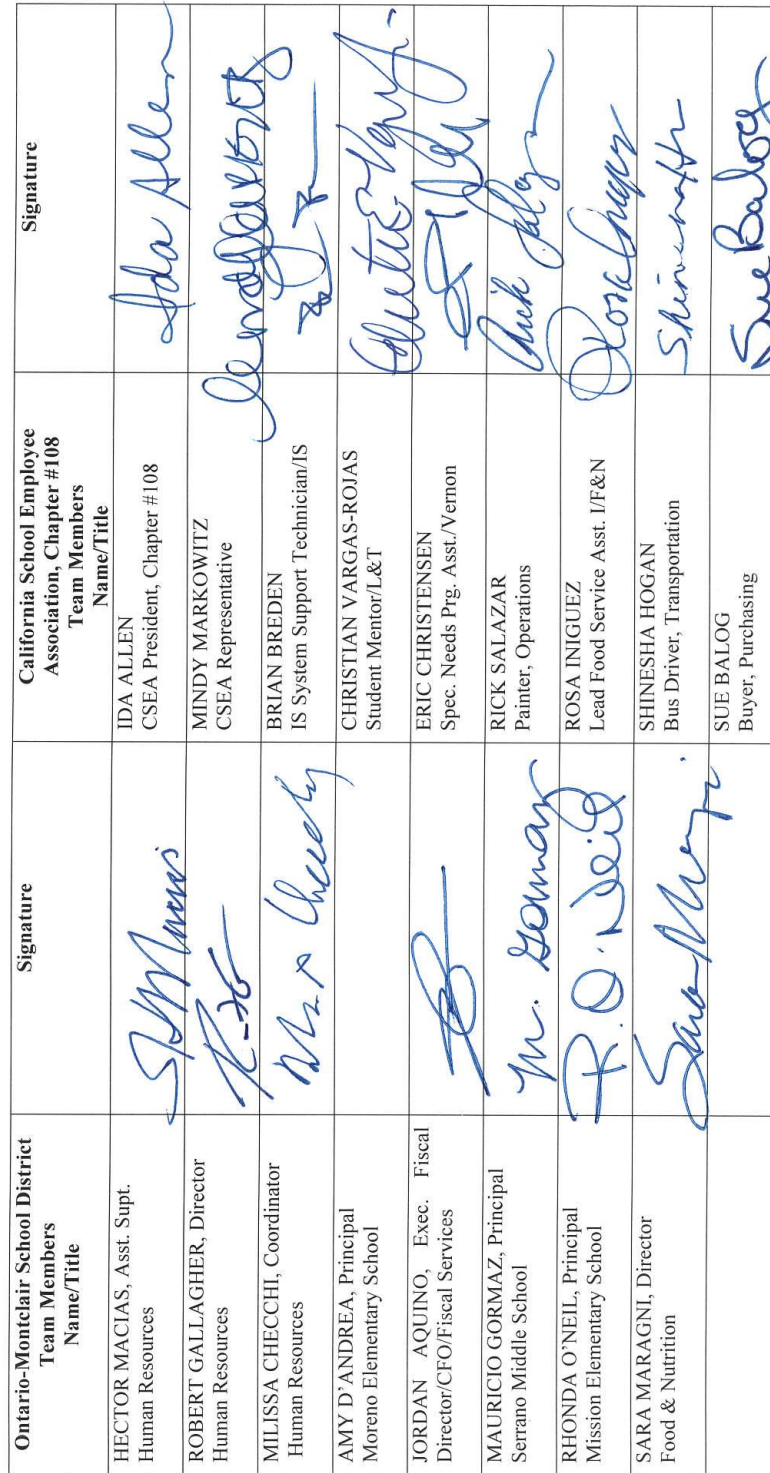 Ontario-Montclair School District
Team Members
Name/Title
Signature
California School Employee
Association, Chapter #108
Team Members
Name/Title
Signature
HECTOR MACIAS, Asst. Supt.
Human Resources
IDA ALLEN
CSEA President, Chapter #108
Ida Allen
ROBERT GALLAGHER, Director
Human Resources
MINDY MARKOWITZ
CSEA Representative
MILISSA CHECCHI, Coordinator
Human Resources
BRIAN BREDEN
IS System Support Technician/IS
AMY D'ANDREA, Principal
Moreno Elementary School
CHRISTIAN VARGAS-ROJAS
Student Mentor/L&T
JORDAN AQUINO, Exec. Fiscal
Director/CFO/Fiscal Services
ERIC CHRISTENSEN
Spec. Needs Prg. Asst./Vernon
MAURICIO GORMAZ, Principal
Serrano Middle School
M. Gormaz
RICK SALAZAR
Painter, Operations
RHONDA O'NEIL, Principal
Mission Elementary School
R. O'Neil
ROSA INIGUEZ
Lead Food Service Asst. I/F&N
SARA MARAGNI, Director
Food & Nutrition
SHINESHA HOGAN
Bus Driver, Transportation
SUE BALOG
Buyer, Purchasing
Sue Balog